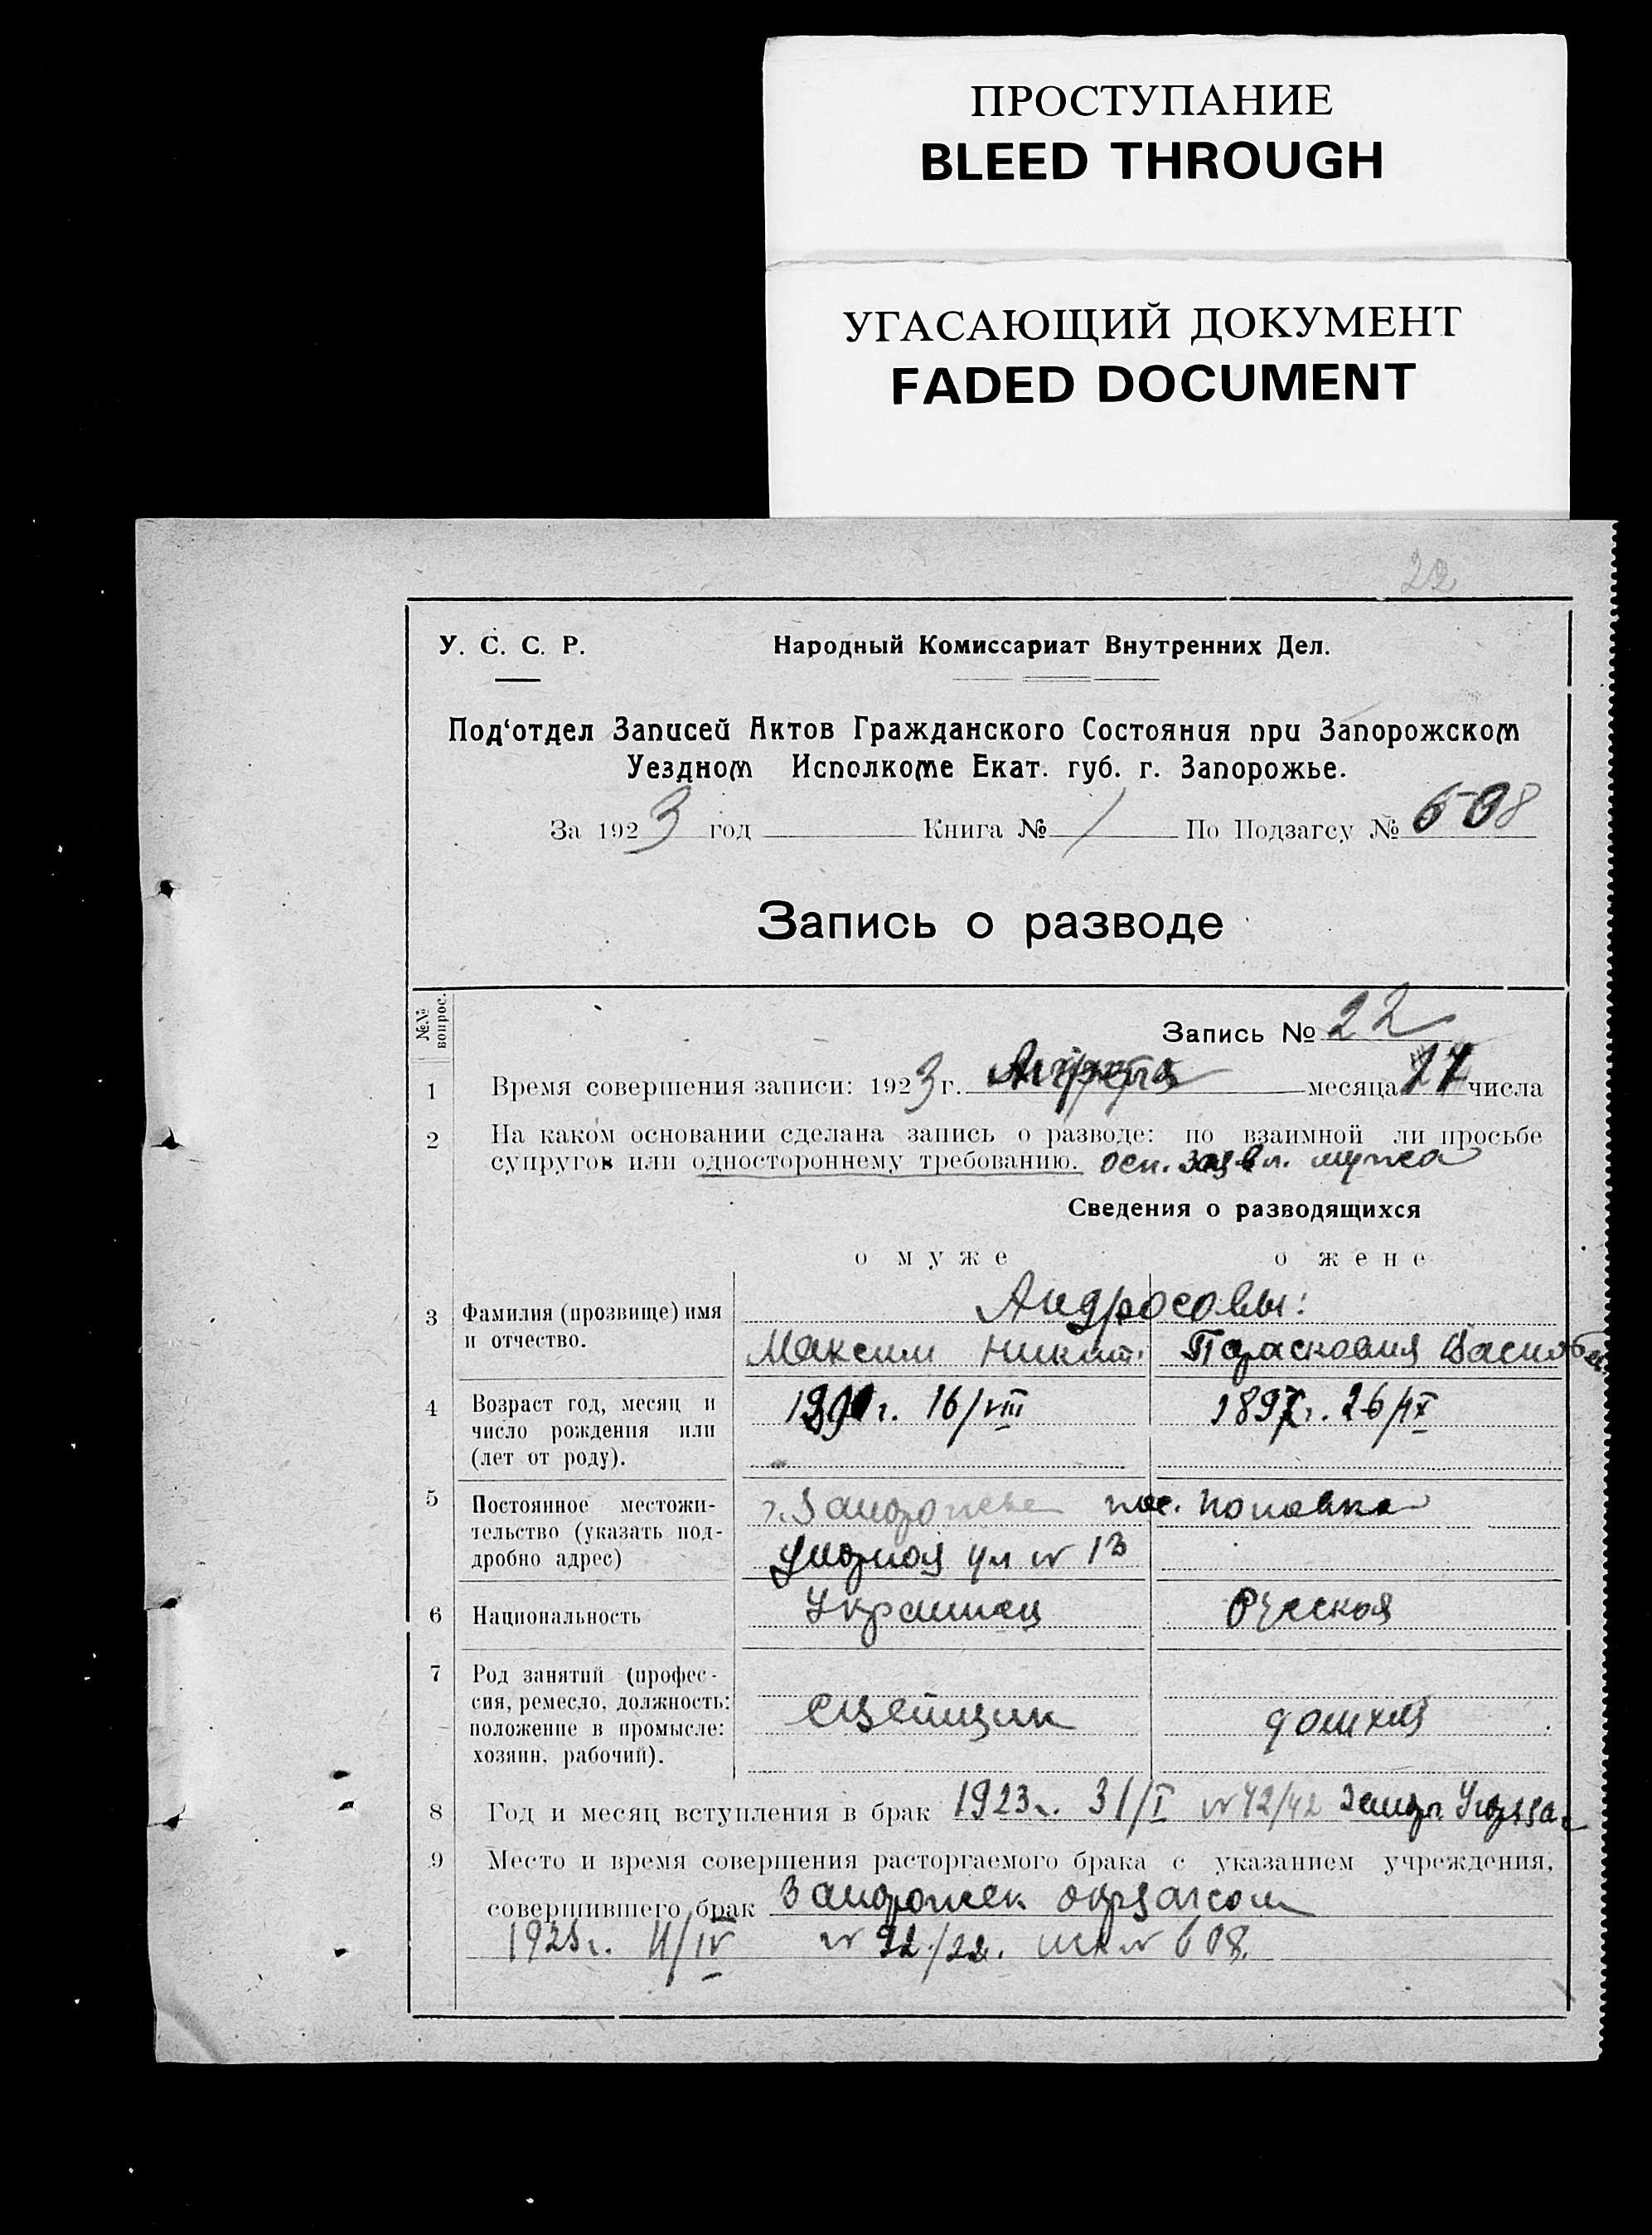 ПРОСТУПАНИЕ
BLEED THROUGH
УГАСАЮЩИЙ ДОКУМЕНТ
FADED DOCUMENT
22
У. С. С. Р. Народный Комиссариат Внутренних Дел.
Под‘отдел Записей Актов Гражданского Состояния при Запорожском
Уездном Исполкоме Екат. губ. г. Запорожье.
За 1923 год Книга № 1 По Подзагсу № 608
Запись о разводе
№№ вопрос.
Запись № 22
1 Время совершения записи: 1923 г. месяца числа
2 На каком основании сделана запись о разводе: по взаимной ли просьбе
супругов или одностороннему требованию. осн. заявл. мужа
Сведения о разводящихся
о муже о жене
3 Фамилия (прозвище) имя
и отчество.
Андросовы:
Максим Никит. Парасковия
4 Возраст год, месяц и
число рождения или
(лет от роду).
г. 16/VIII 1897 г. 26/IX
5 Постоянное местожи-
тельство (указать под-
дробно адрес)
г. Запорожье пос. Поповка
ул № 13
6 Национальность Украинец Русская
7 Род занятий (профес-
сия, ремесло, должность:
положение в промысле:
хозяин, рабочий).
сцепщик домхоз
8 Год и месяц вступления в брак 1923 г. 31/I № 42/42 Запор.
9 Место и время совершения расторгаемого брака с указанием учреждения,
совершившего брак Запорожск окрзагсом
/IV № 22/22. № 608.